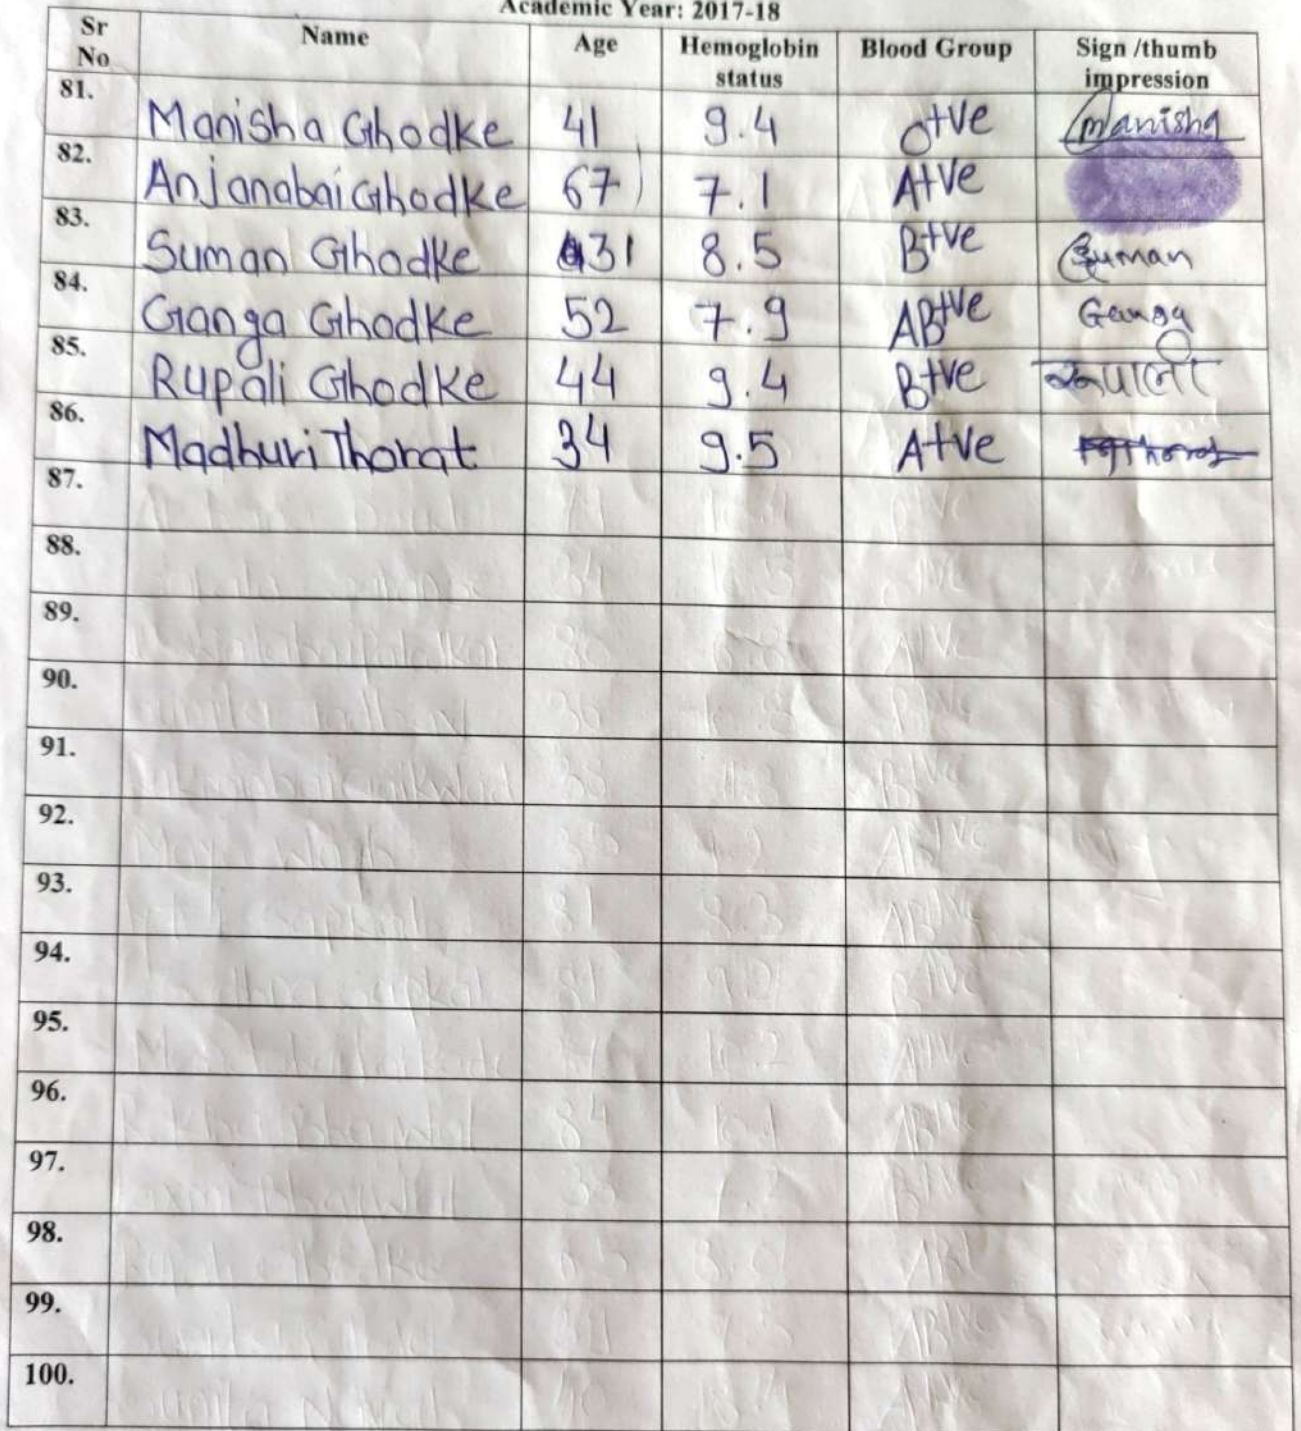 Academic Year: 2017-18
Sr No Name Age Hemoglobin status Blood Group Sign /thumb impression
81. Manisha Ghodke 41 9.4 O+ve Manisha
82. Anjanabai Ghodke 67 7.1 A+ve
83. Suman Ghodke 31 8.5 B+ve Suman
84. Ganga Ghodke 52 7.9 AB+ve Ganga
85. Rupali Ghodke 44 9.4 B+ve रूपाली
86. Madhuri Thorat 34 9.5 A+ve
87.
88.
89.
90.
91.
92.
93.
94.
95.
96.
97.
98.
99.
100.